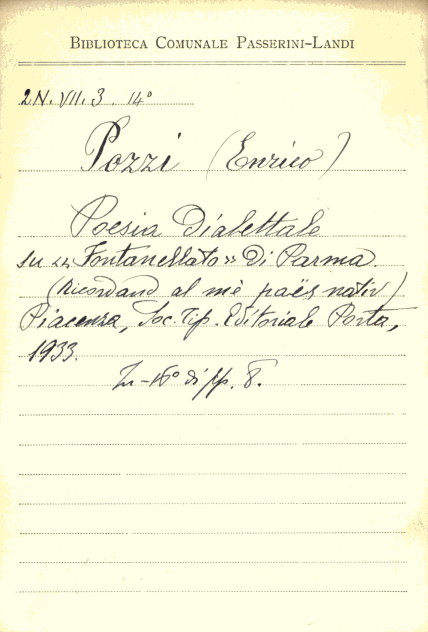 BIBLIOTECA COMUNALE PASSERINI-LANDI
2N. VII. 3. 14°
Pozzi (Enrico)
Poesia Dialettale
su << Fontanellato >> di Parma.
(Ricordand al mè paës nativ)
Piacenza, Soc. Tip. Editoriale Porta,
1933.
In-16° di pp. 8.